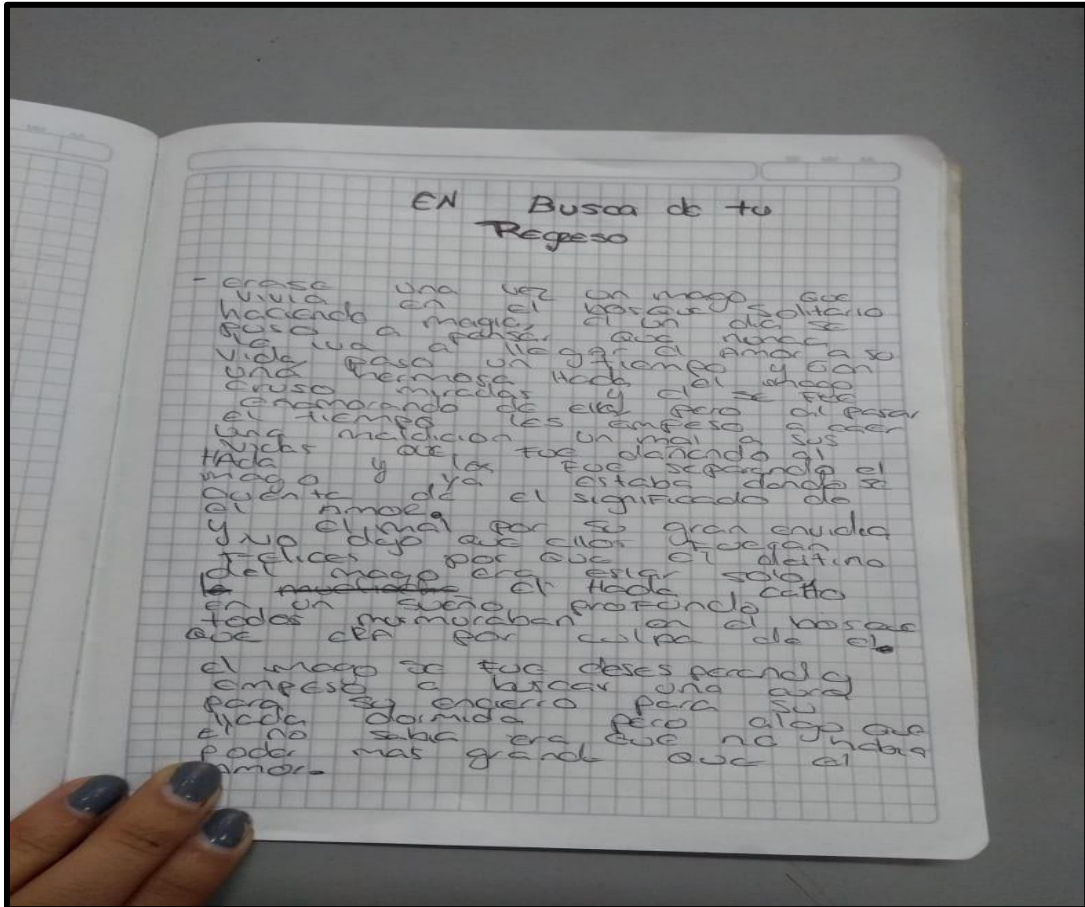 EN Busca de tu
Regreso
- erase una vez un mago que
vivia en el bosque solitario
haciendo magia, el un dia se
puso a pensar que nunca
le iva a llegar el Amor a su
vida paso un tiempo y con
una hermosa Hada el mago
cruso miradas y el se fue
enamorando de ella pero al pasar
el tiempo les empeso a caer
una maldicion un mal a sus
vidas que fue dañando al
HAda y los fue separando el
mago ya estaba dandose
cuenta de el significado de
el Amor
y el mal por su gran envidia
y no dejo que ellos fueran
Felices por que el destino
del mago era estar solo,
el Hada callo
en un sueño profundo
todos murmuraban en el bosque
que era por culpa de el.
el mago se fue desesperando y
empeso a buscar una
para su encierro para su
Hada dormida pero algo que
el no sabia era que no habia
poder mas grande que el
Amor.